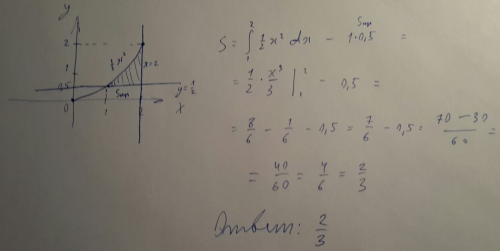 y
2
½x²
x=2
0,5
y=½
Sпр
0
1
2
x
S = ∫₁² ½x² dx − 1·0,5 =
Sпр
= ½ · x³/3 |₁² − 0,5 =
= 8/6 − 1/6 − 0,5 = 7/6 − 0,5 = 70−30/60 =
= 40/60 = 4/6 = 2/3
Ответ: 2/3